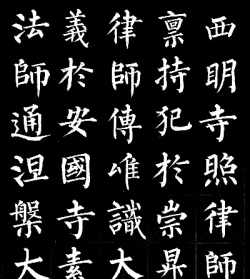 西明寺照律師
禀持犯於崇昇
律師傳唯識大
義於安國寺素
法師通涅槃大